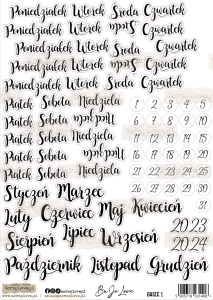 Poniedziałek Wtorek Środa Czwartek
Poniedziałek Wtorek Środa Czwartek
Poniedziałek Wtorek Środa Czwartek
Poniedziałek Wtorek Środa Czwartek
Poniedziałek Wtorek Środa Czwartek
Piątek Sobota Niedziela 1 2 3 4 5
Piątek Sobota Niedziela 6 7 8 9 10
Piątek Sobota Niedziela 11 12 13 14 15
Piątek Sobota Niedziela 16 17 18 19 20
Piątek Sobota Niedziela 21 22 23 24 25
Styczeń Marzec 26 27 28 29 30
Luty Czerwiec Maj Kwiecień 31
Sierpień Lipiec Wrzesień 2023
2024
Październik Listopad Grudzień
Be Jo Love
BASIC 1